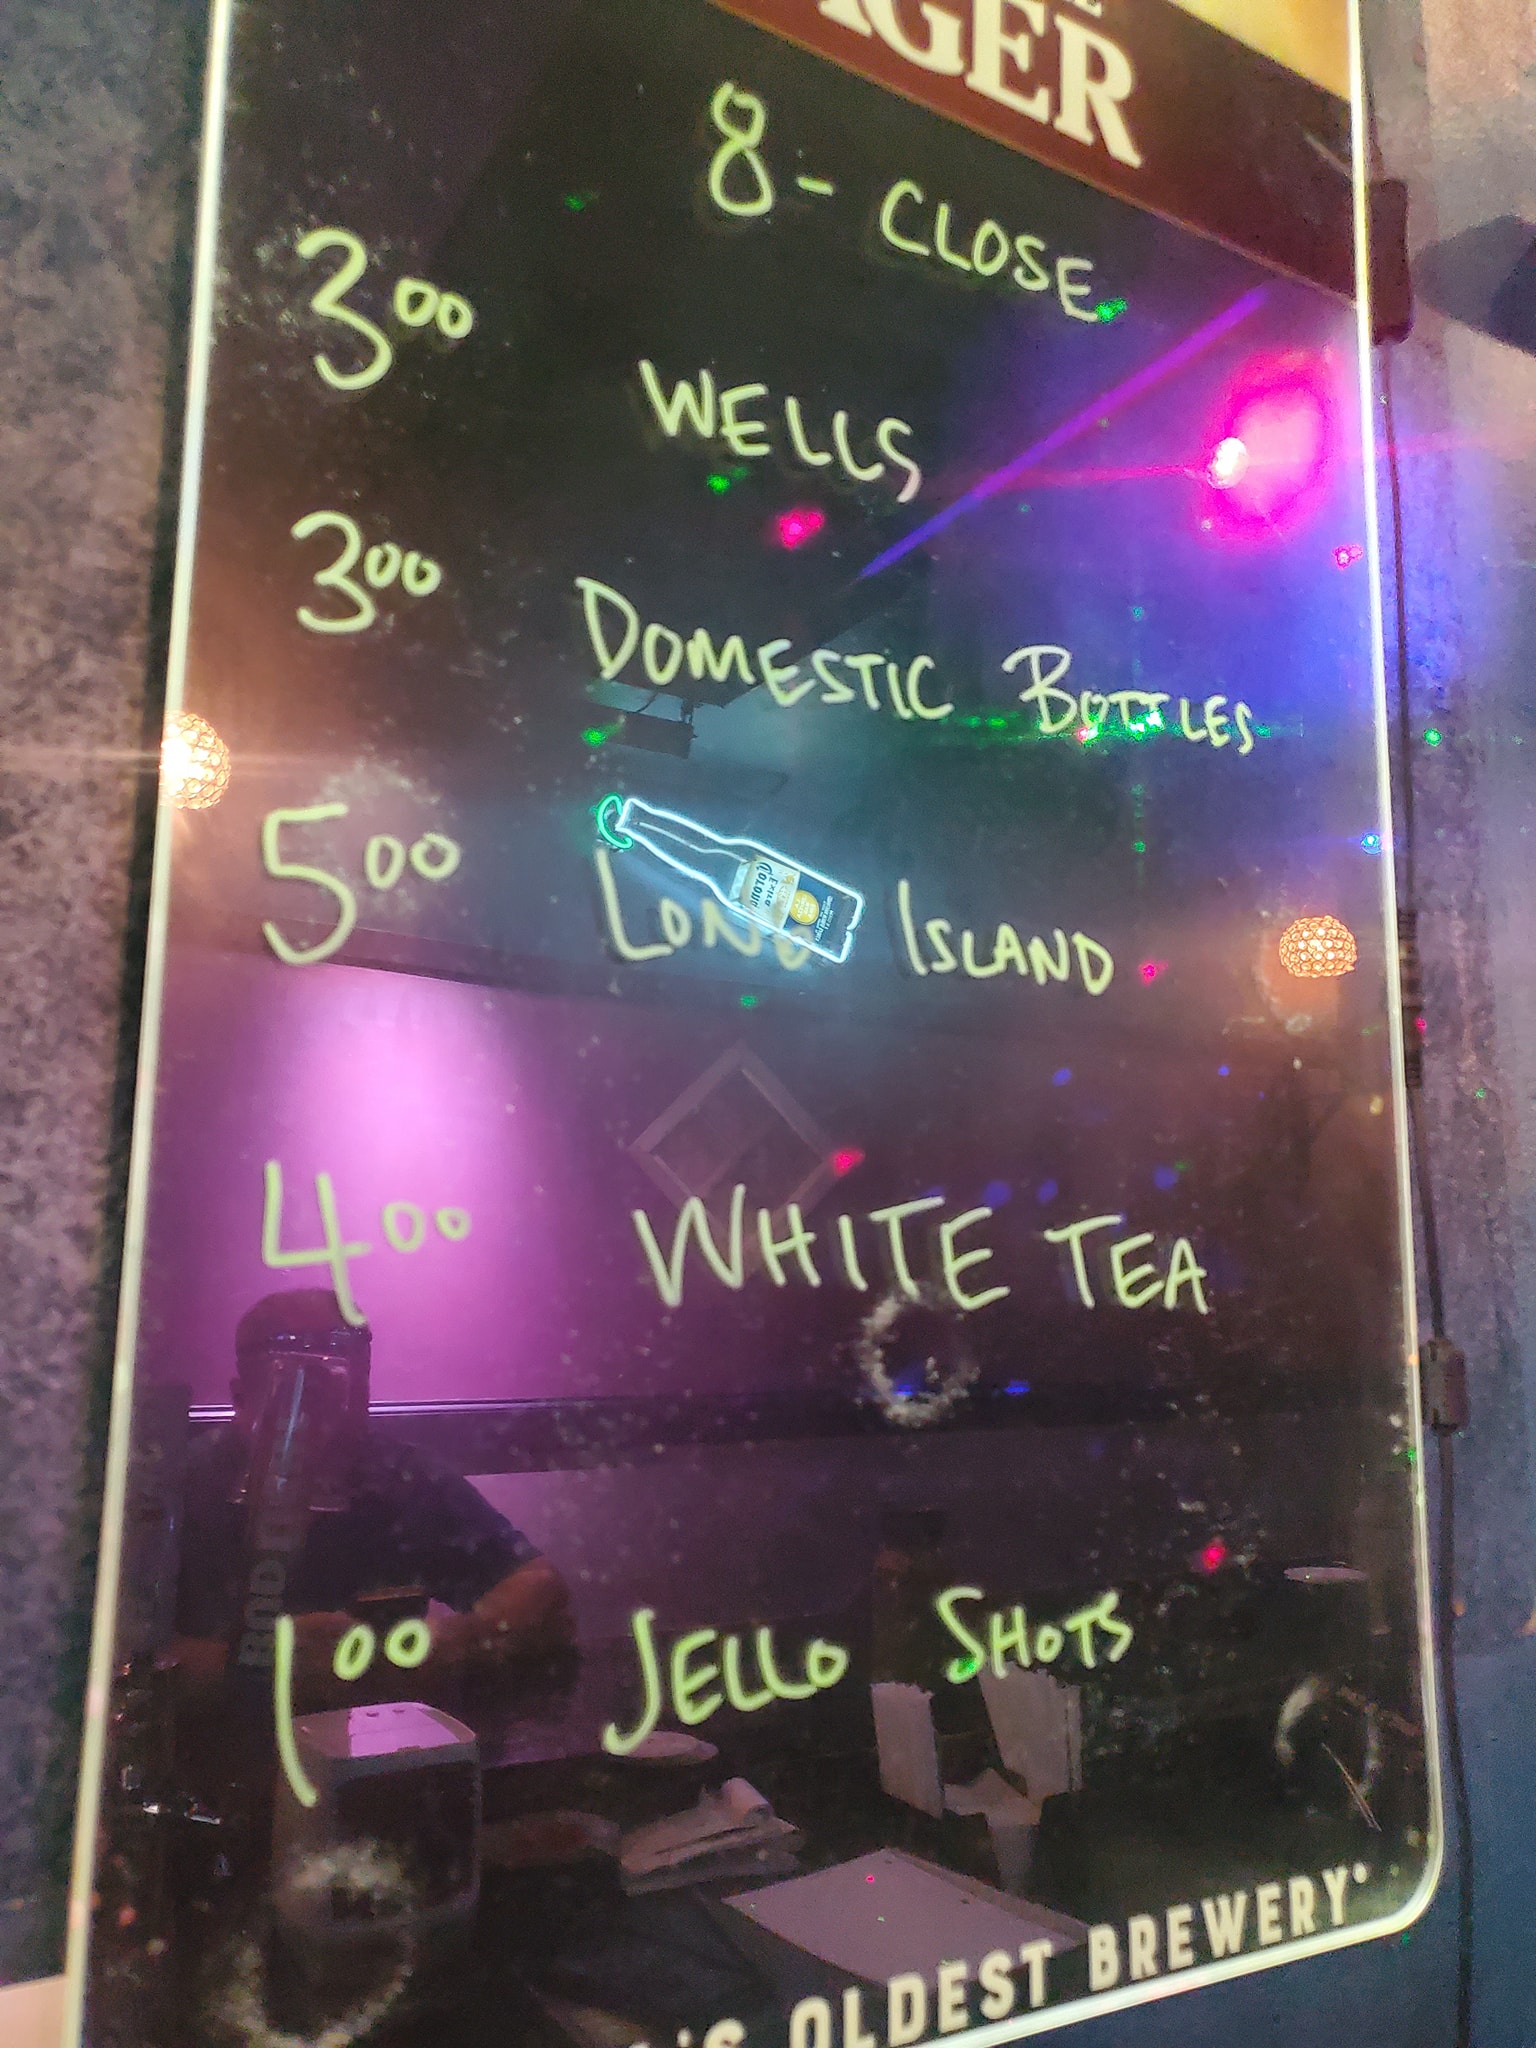 GER
8 - CLOSE
3 00 WELLS
3 00 DOMESTIC BOTTLES
5 00 LONG ISLAND
Corona
Extra
4 00 WHITE TEA
1 00 JELLO SHOTS
'S OLDEST BREWERY®